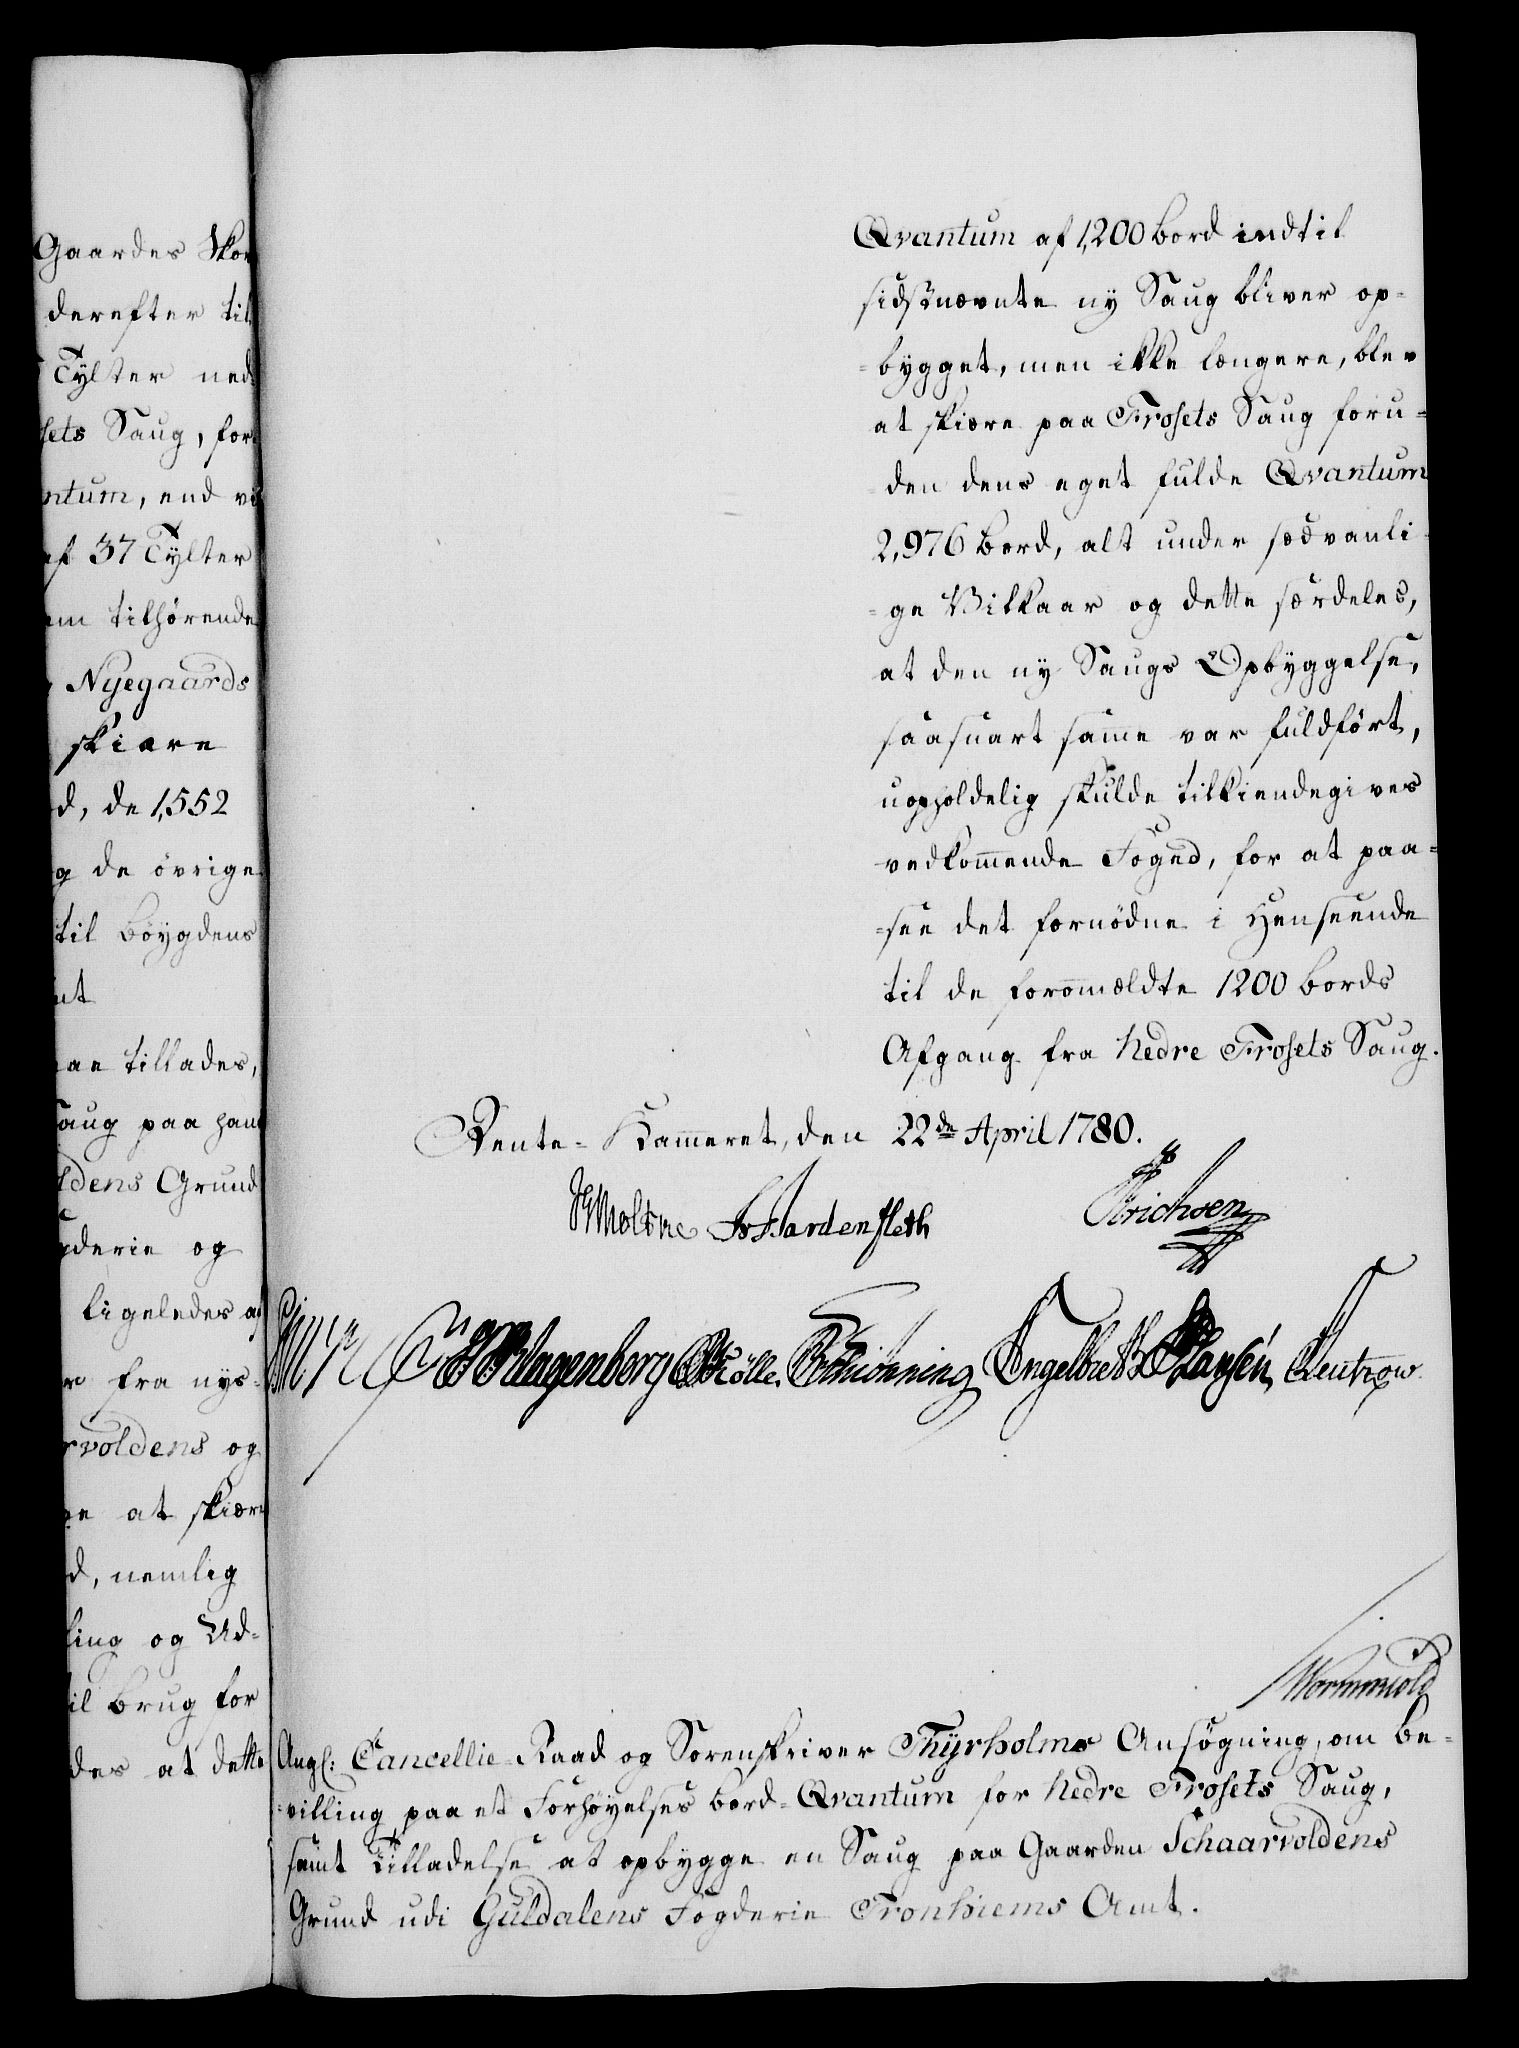 Gaardes Skov
derefter til
Tylter ned
sets Saug, for
ntum, end vi
af 37 Tylter
em tilhørende
Nyegaards
skiære
d, de 1,552
g de øvrige
til Bøygdens
nt
aae tillades,
Saug paa hans
ldens Grund
gderie og
ligeledes af
r fra nys-
rvoldens og
ne at skiære
d, nemlig
ling og Ud-
il Brug for
des at dette
Qvantum af 1,200 Bord indtil
sidstnævnte ny Saug bliver op-
-bygget, men ikke længere, blev
at skiære paa Frosets Saug foru-
-den dens eget fulde Qvantum
2,976 Bord, alt under sædvanli-
-ge Vilkaar og dette særdeles,
at den ny Saugs Opbyggelse,
saasnart samme var fuldført,
uopholdelig skulde tilkiendegives
vedkommende Foged, for at paa-
-see det fornødne i Henseende
til de forommældte 1200 Bords
Afgang fra Nedre Frosets Saug.
Rente-Kammeret, den 22de April 1780.
Moltke Hardenfleth Erichsen
Klagenberg Rølle. Schiønning Engelbret Hansen Leutzow.
Wormskiold
Ang: Cancellie-Raad og Sorenskriver Thyrholms Ansøgning, om Be-
-villing paa et Forhøyelses Bord-Qvantum for Nedre Frosets Saug,
samt Tilladelse at opbygge en Saug paa Gaarden Schaarvoldens
Grund udi Guldalens Fogderie Tronhiems Amt.